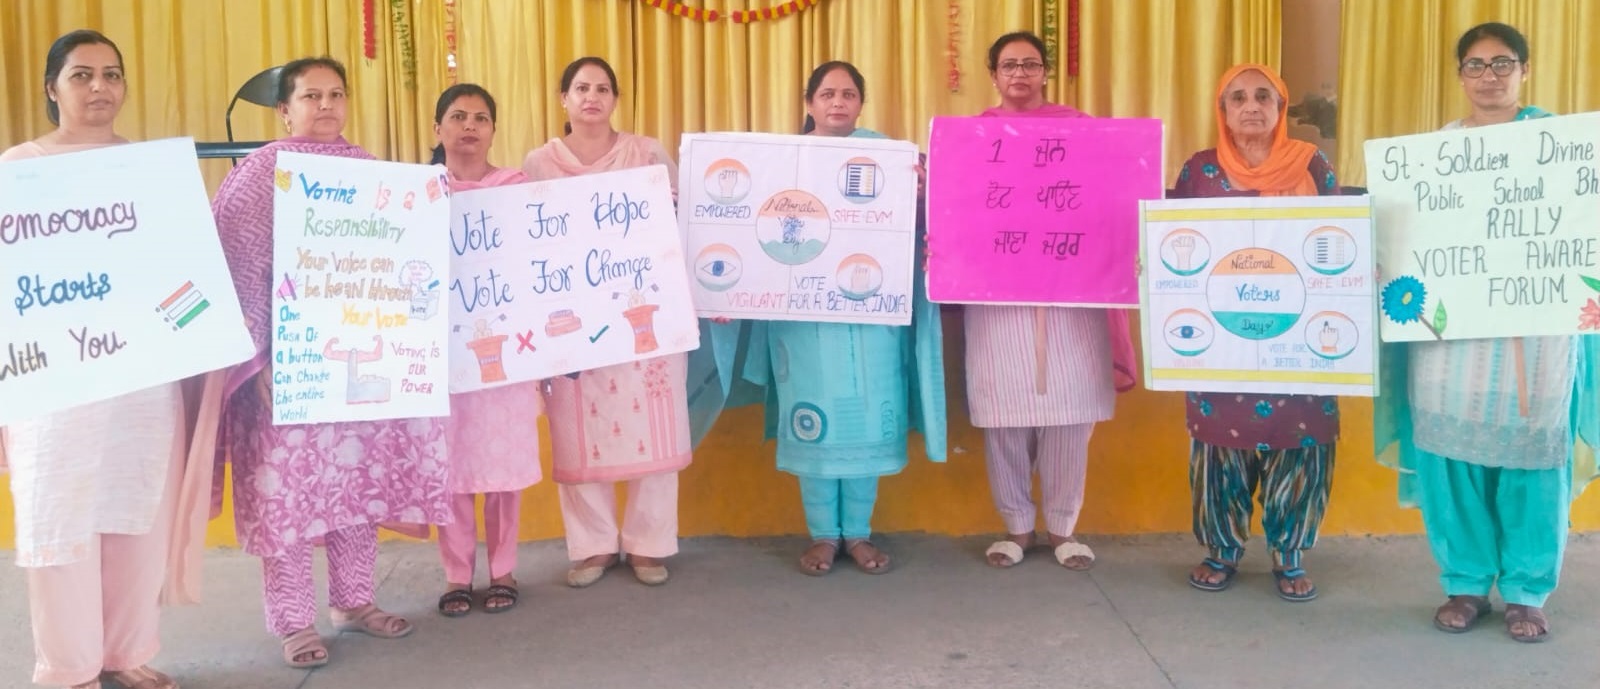 emocracy
Starts
With You.
VOTING IS A
RESPONSIBILITY
Your Voice can
be heard through
Your Vote
One
Push Of
a button
Can Change
the entire
World
VOTING IS
OUR
POWER
Vote For Hope
Vote For Change
EMPOWERED
SAFE-EVM
Nationals
Voters
Day
VIGILANT
VOTE
FOR A BETTER INDIA
1 ਜੂਨ
ਵੋਟ ਪਾਉਣ
ਜਾਣਾ ਜ਼ਰੂਰ
EMPOWERED
SAFE-EVM
National
Voters
Days
VIGILANT
VOTE FOR
A BETTER INDIA
St. Soldier Divine
Public School Bh
RALLY
VOTER AWARE
FORUM